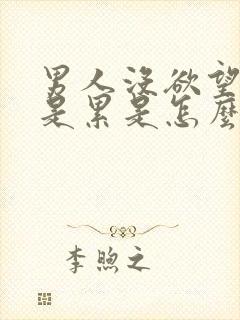 男人没欲望
是累是怎麼
李煦之